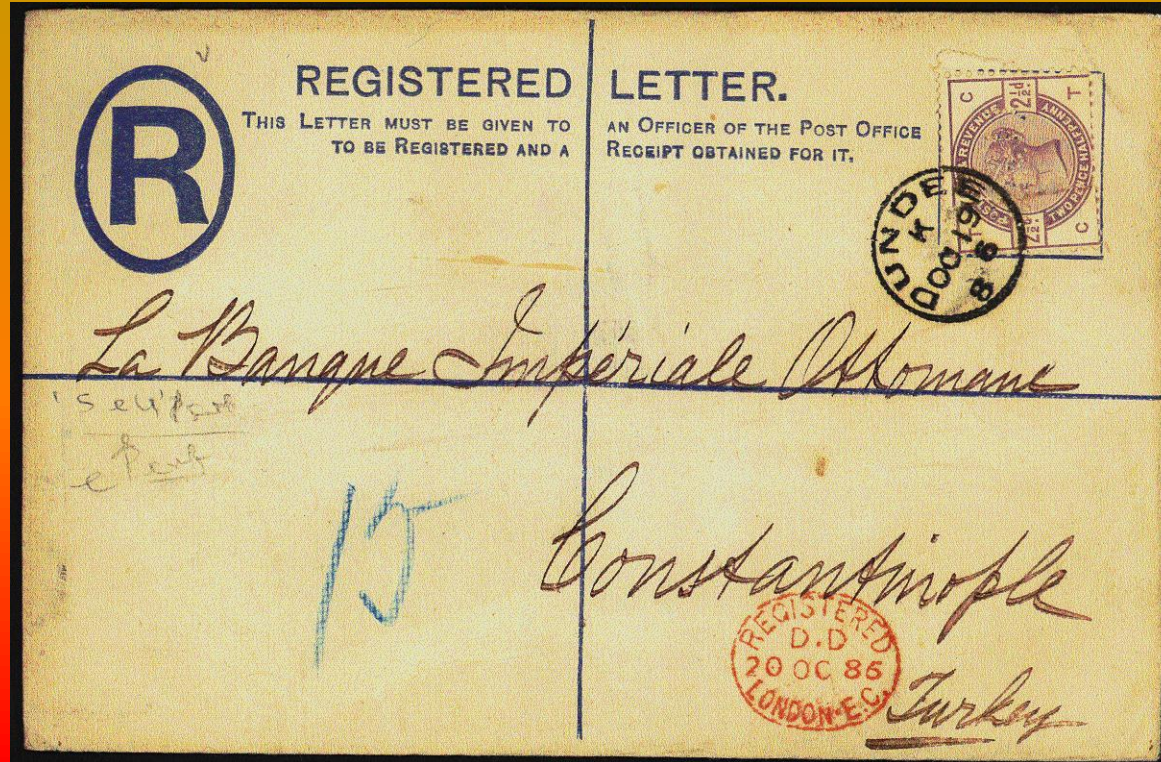 R
REGISTERED LETTER.
THIS LETTER MUST BE GIVEN TO AN OFFICER OF THE POST OFFICE
TO BE REGISTERED AND A RECEIPT OBTAINED FOR IT.
C T
2½d.
REVENUE
TWO PENCE HALFPENNY
2½d.
T C
DUNDEE
K
OC 19
86
La Banque Impériale Ottomane
15
Constantinople
REGISTERED
D.D
20 OC 86
LONDON.E.C.
Turkey